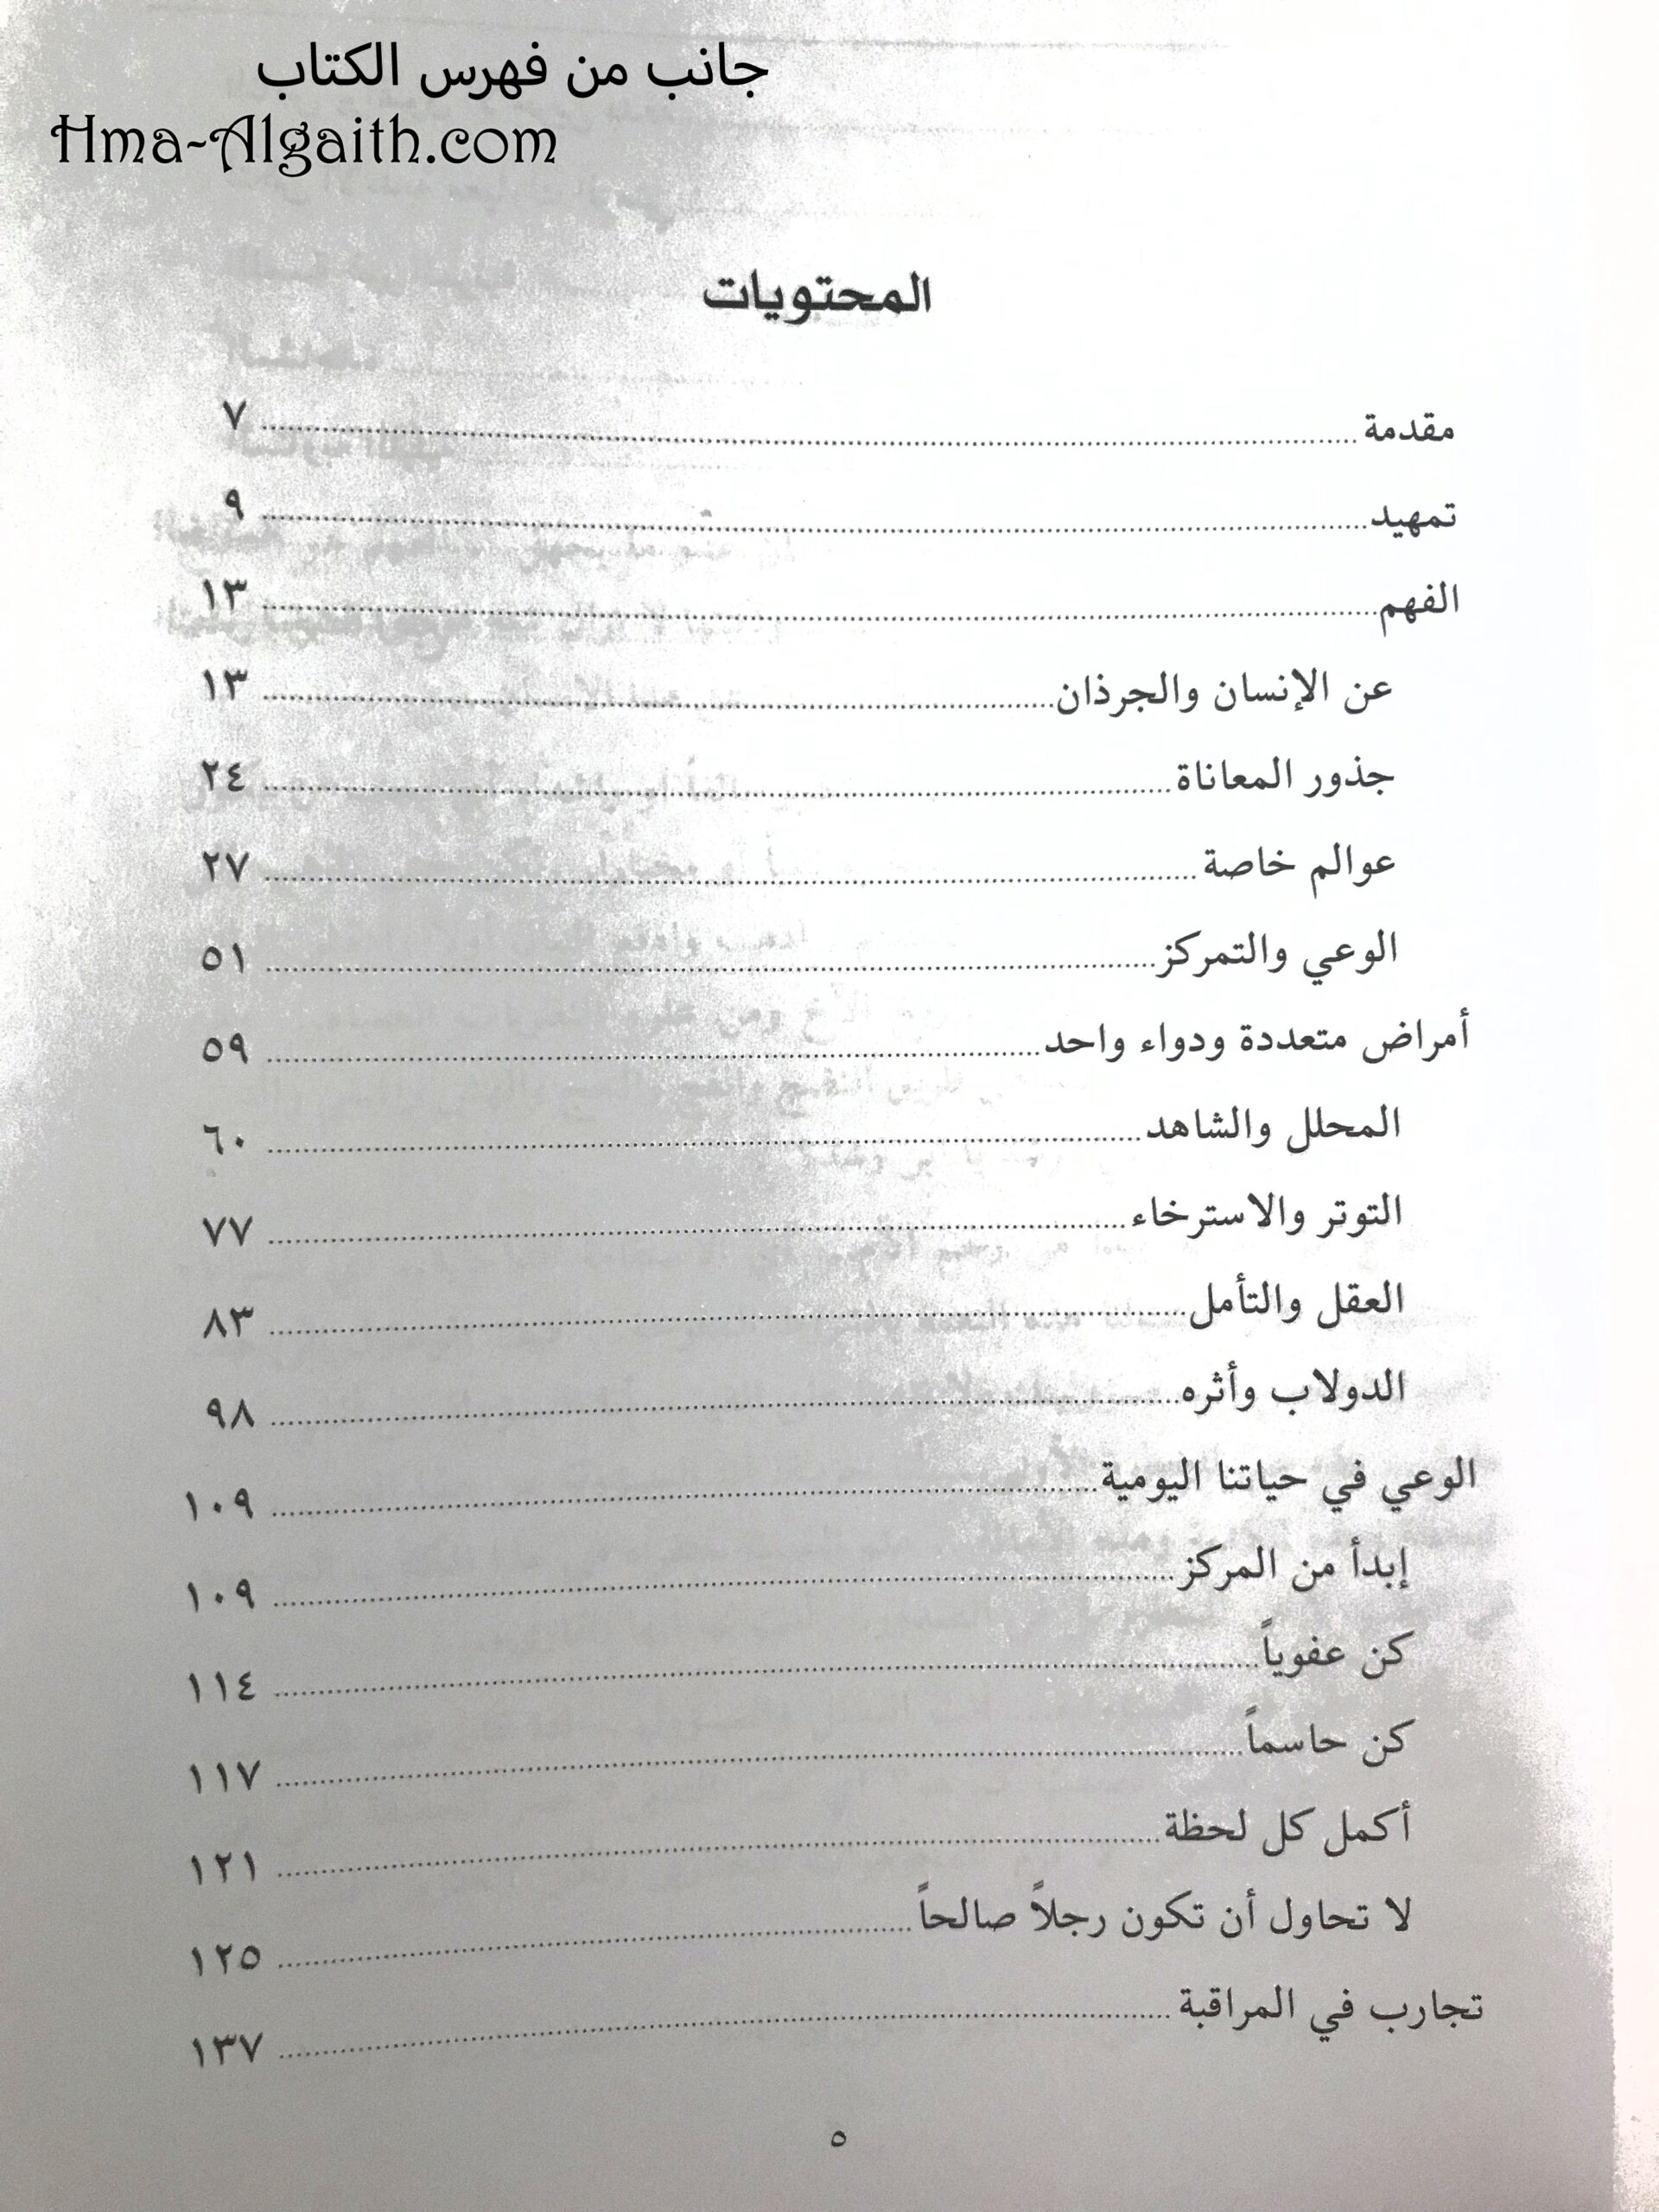 جانب من فهرس الكتاب
Hma-Algaith.com
المحتويات
مقدمة ........ ٧
تمهيد ........ ٩
الفهم ........ ١٣
عن الإنسان والجرذان ........ ١٣
جذور المعاناة ........ ٢٤
عوالم خاصة ........ ٢٧
الوعي والتمركز ........ ٥١
أمراض متعددة ودواء واحد ........ ٥٩
المحلل والشاهد ........ ٦٠
التوتر والاسترخاء ........ ٧٧
العقل والتأمل ........ ٨٣
الدولاب وأثره ........ ٩٨
الوعي في حياتنا اليومية ........ ١٠٩
إبدأ من المركز ........ ١٠٩
كن عفوياً ........ ١١٤
كن حاسماً ........ ١١٧
أكمل كل لحظة ........ ١٢١
لا تحاول أن تكون رجلاً صالحاً ........ ١٢٥
تجارب في المراقبة ........ ١٣٧
٥